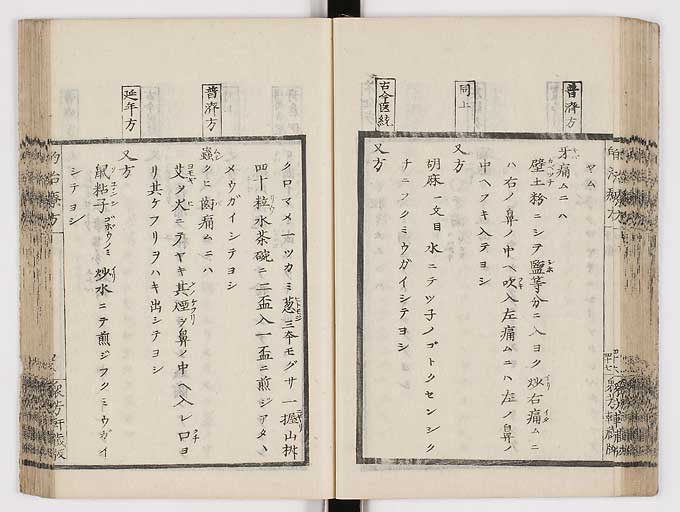 普濟方
同上
古今医統
ヤム
牙痛ムニハ
壁土粉ニシテ鹽等分ニ入ヨク炒右痛ムニ
ハ右ノ鼻ノ中ヘ吹入左痛ムニハ左ノ鼻ノ
中ヘフキ入テヨシ
又方
胡麻一文目水ニテツ子ノゴトクセンジク
チニフクミウガイシテヨシ
又方
普濟方
延年方
クロマメ一ツカミ葱三本モグサ一握山椒
四十粒水茶碗ニ二盃入一盃ニ煎ジアタヽ
メウガイシテヨシ
蟲クヒ歯痛ムニハ
艾ヲ火ニテヤキ其煙ヲ鼻ノ中ヘ入レ口ヨ
リ其ケフリヲハキ出シテヨシ
又方
鼠粘子炒水ニテ煎ジフクミウガイ
シテヨシ